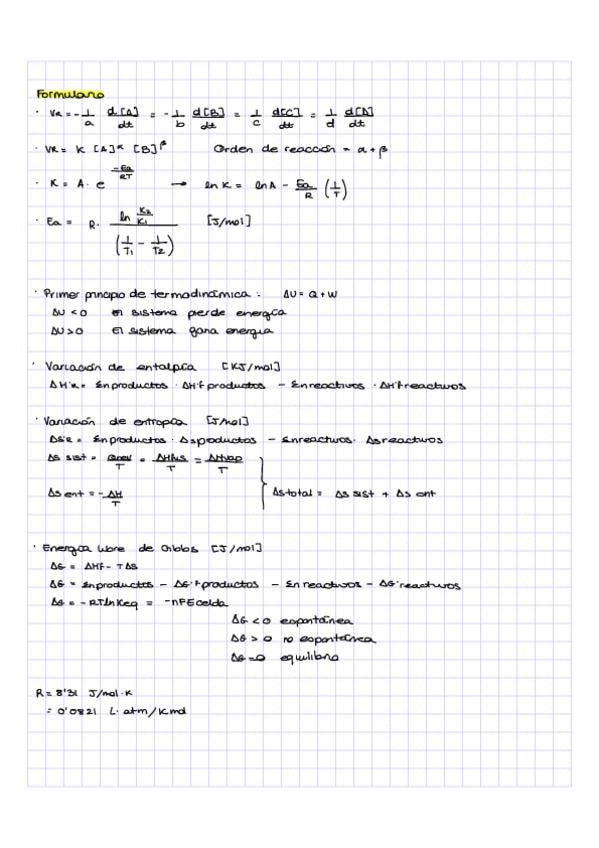 Formulario
· VR = - 1/a d[A]/dt = - 1/b d[B]/dt = 1/c d[C]/dt = 1/d d[D]/dt
· VR = K [A]^α [B]^β Orden de reacción = α + β
· K = A · e^(-Ea/RT) → ln K = ln A - Ea/R (1/T)
· Ea = R · ln K2/K1 / (1/T1 - 1/T2) [J/mol]
· Primer principio de termodinámica : ΔU = Q + W
ΔU < 0 El sistema pierde energía
ΔU > 0 El sistema gana energía
· Variación de entalpía [KJ/mol]
ΔH°R = Σn productos · ΔH°f productos - Σn reactivos · ΔH°f reactivos
· Variación de entropía [J/mol]
ΔS°R = Σn productos · Δs productos - Σn reactivos · Δs reactivos
Δs sist = Qrev/T = ΔHfus/T = ΔHvap/T
Δs ent = - ΔH/T } Δs total = Δs sist + Δs ent
· Energía libre de Gibbs [J/mol]
ΔG = ΔHf - TΔS
ΔG = Σn productos - ΔG°f productos - Σn reactivos - ΔG° reactivos
ΔG = -RTlnKeq = -nFEcelda
ΔG < 0 espontánea
ΔG > 0 no espontánea
ΔG = 0 equilibrio
R = 8'31 J/mol·K
= 0'0821 L·atm/Kmol